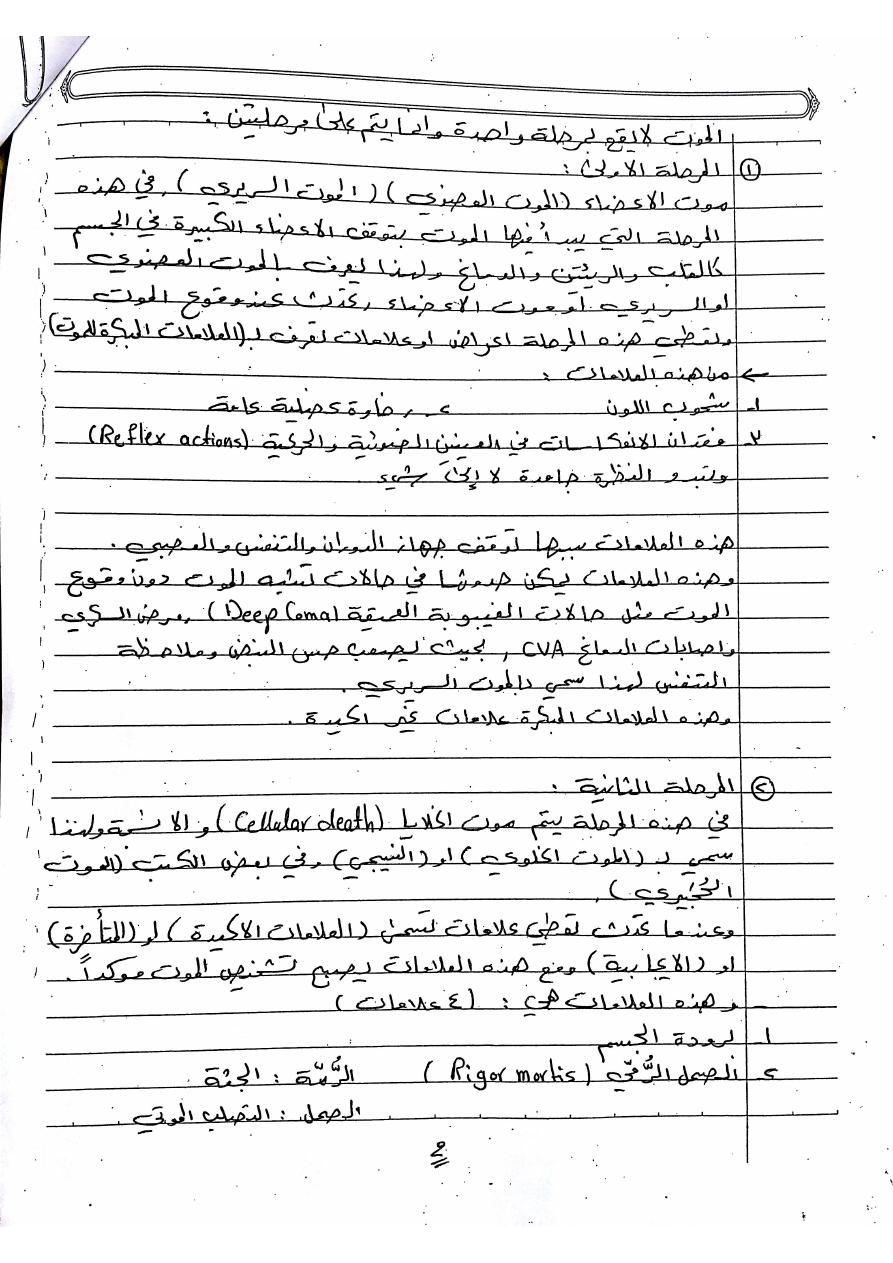 الموت لا يقع بمرحلة واحدة وانما يتم على مرحلتين :
① المرحلة الاولى :
موت الاعضاء (الموت العضوي) (الموت السريري) , في هذه
المرحلة التي يبدأ فيها الموت بتوقف الاعضاء الكبيرة في الجسم
كالقلب والرئتين والدماغ ولهذا يعرف بالموت العضوي
او السريري او موت الاعضاء , يحدث عند وقوع الموت
وتعطي هذه المرحلة اعراض او علامات تعرف بـ (العلامات المبكرة للموت)
← من هذه العلامات :
١- شحوب اللون ٢- رخاوة عضلية عامة
٣- فقدان الانعكاسات في العينين الضوئية والحركية (Reflex actions)
وتبدو النظرة جامدة لا إلى شيء .
هذه العلامات سببها توقف جهاز الدوران والتنفس والعصبي .
وهذه العلامات يمكن حدوثها في حالات تشبه الموت دون وقوع
الموت مثل حالات الغيبوبة العميقة (Deep Coma) , مرض السكري
واصابات الدماغ CVA , بحيث يصعب جس النبض وملاحظة
التنفس لهذا سمي بالموت السريري .
وهذه العلامات المبكرة علامات غير اكيدة .
② المرحلة الثانية :
في هذه المرحلة يتم موت الخلايا (Cellular death) و الانسجة ولهذا
سمي بـ (الموت الخلوي) او (النسيجي) وفي بعض الكتب (الموت
الجُزيري) .
وعندما يحدث تعطي علامات تسمى (العلامات الاكيدة) او (المتأخرة)
او (الايجابية) ومع هذه العلامات يصبح تشخيص الموت موكداً .
- وهذه العلامات هي : (٤ علامات)
١- برودة الجسم
٢- الصمل الرُّمّي (Rigor mortis) الرُّمّة : الجثة
الصمل : التصلب الموتي
٢